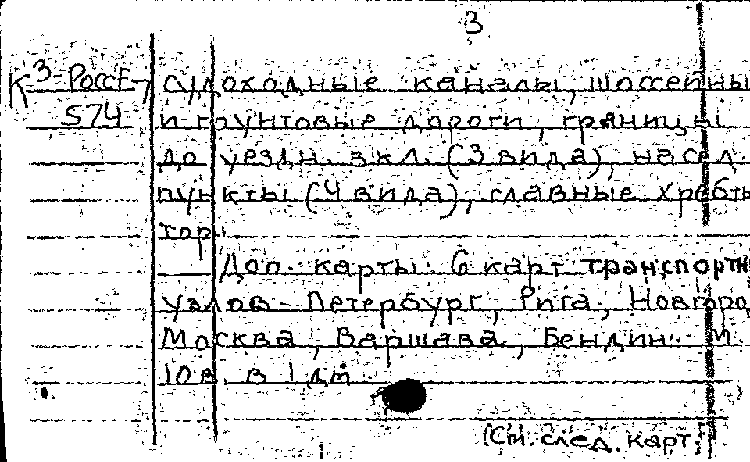 3
К 3-Росс
5
574
судоходные каналы, шоссейны
и грунтовые дороги, границы
до уездн. вкл. (3 вида), насел.
пункты (4 вида), главные хребты
гор.
Доп. карты: 6 карт транспортн
узлов - Петербург, Рига, Новгород
Москва, Варшава, Бендин. М.
10 в. в 1 дм.
(См. след. карт.)